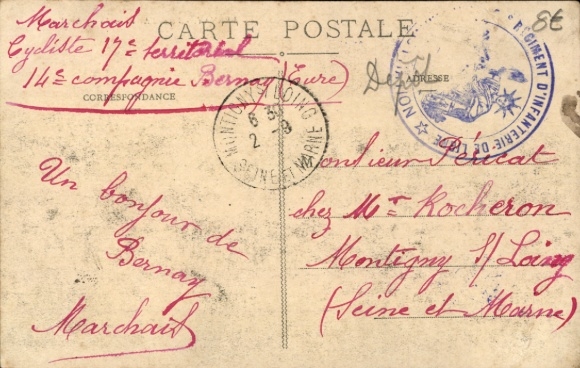 Marchait
Cycliste 17e territorial
14e compagnie Bernay (Eure)
CARTE POSTALE
8€
CORRESPONDANCE
ADRESSE
MONTIGNY S/ LOING
SEINE ET MARNE
RÉGIMENT D'INFANTERIE DE LIGNE
Un bonjour de
Bernay
Marchait
Monsieur Péricat
chez Mr Rocheron
Montigny s/ Loing
(Seine et Marne)